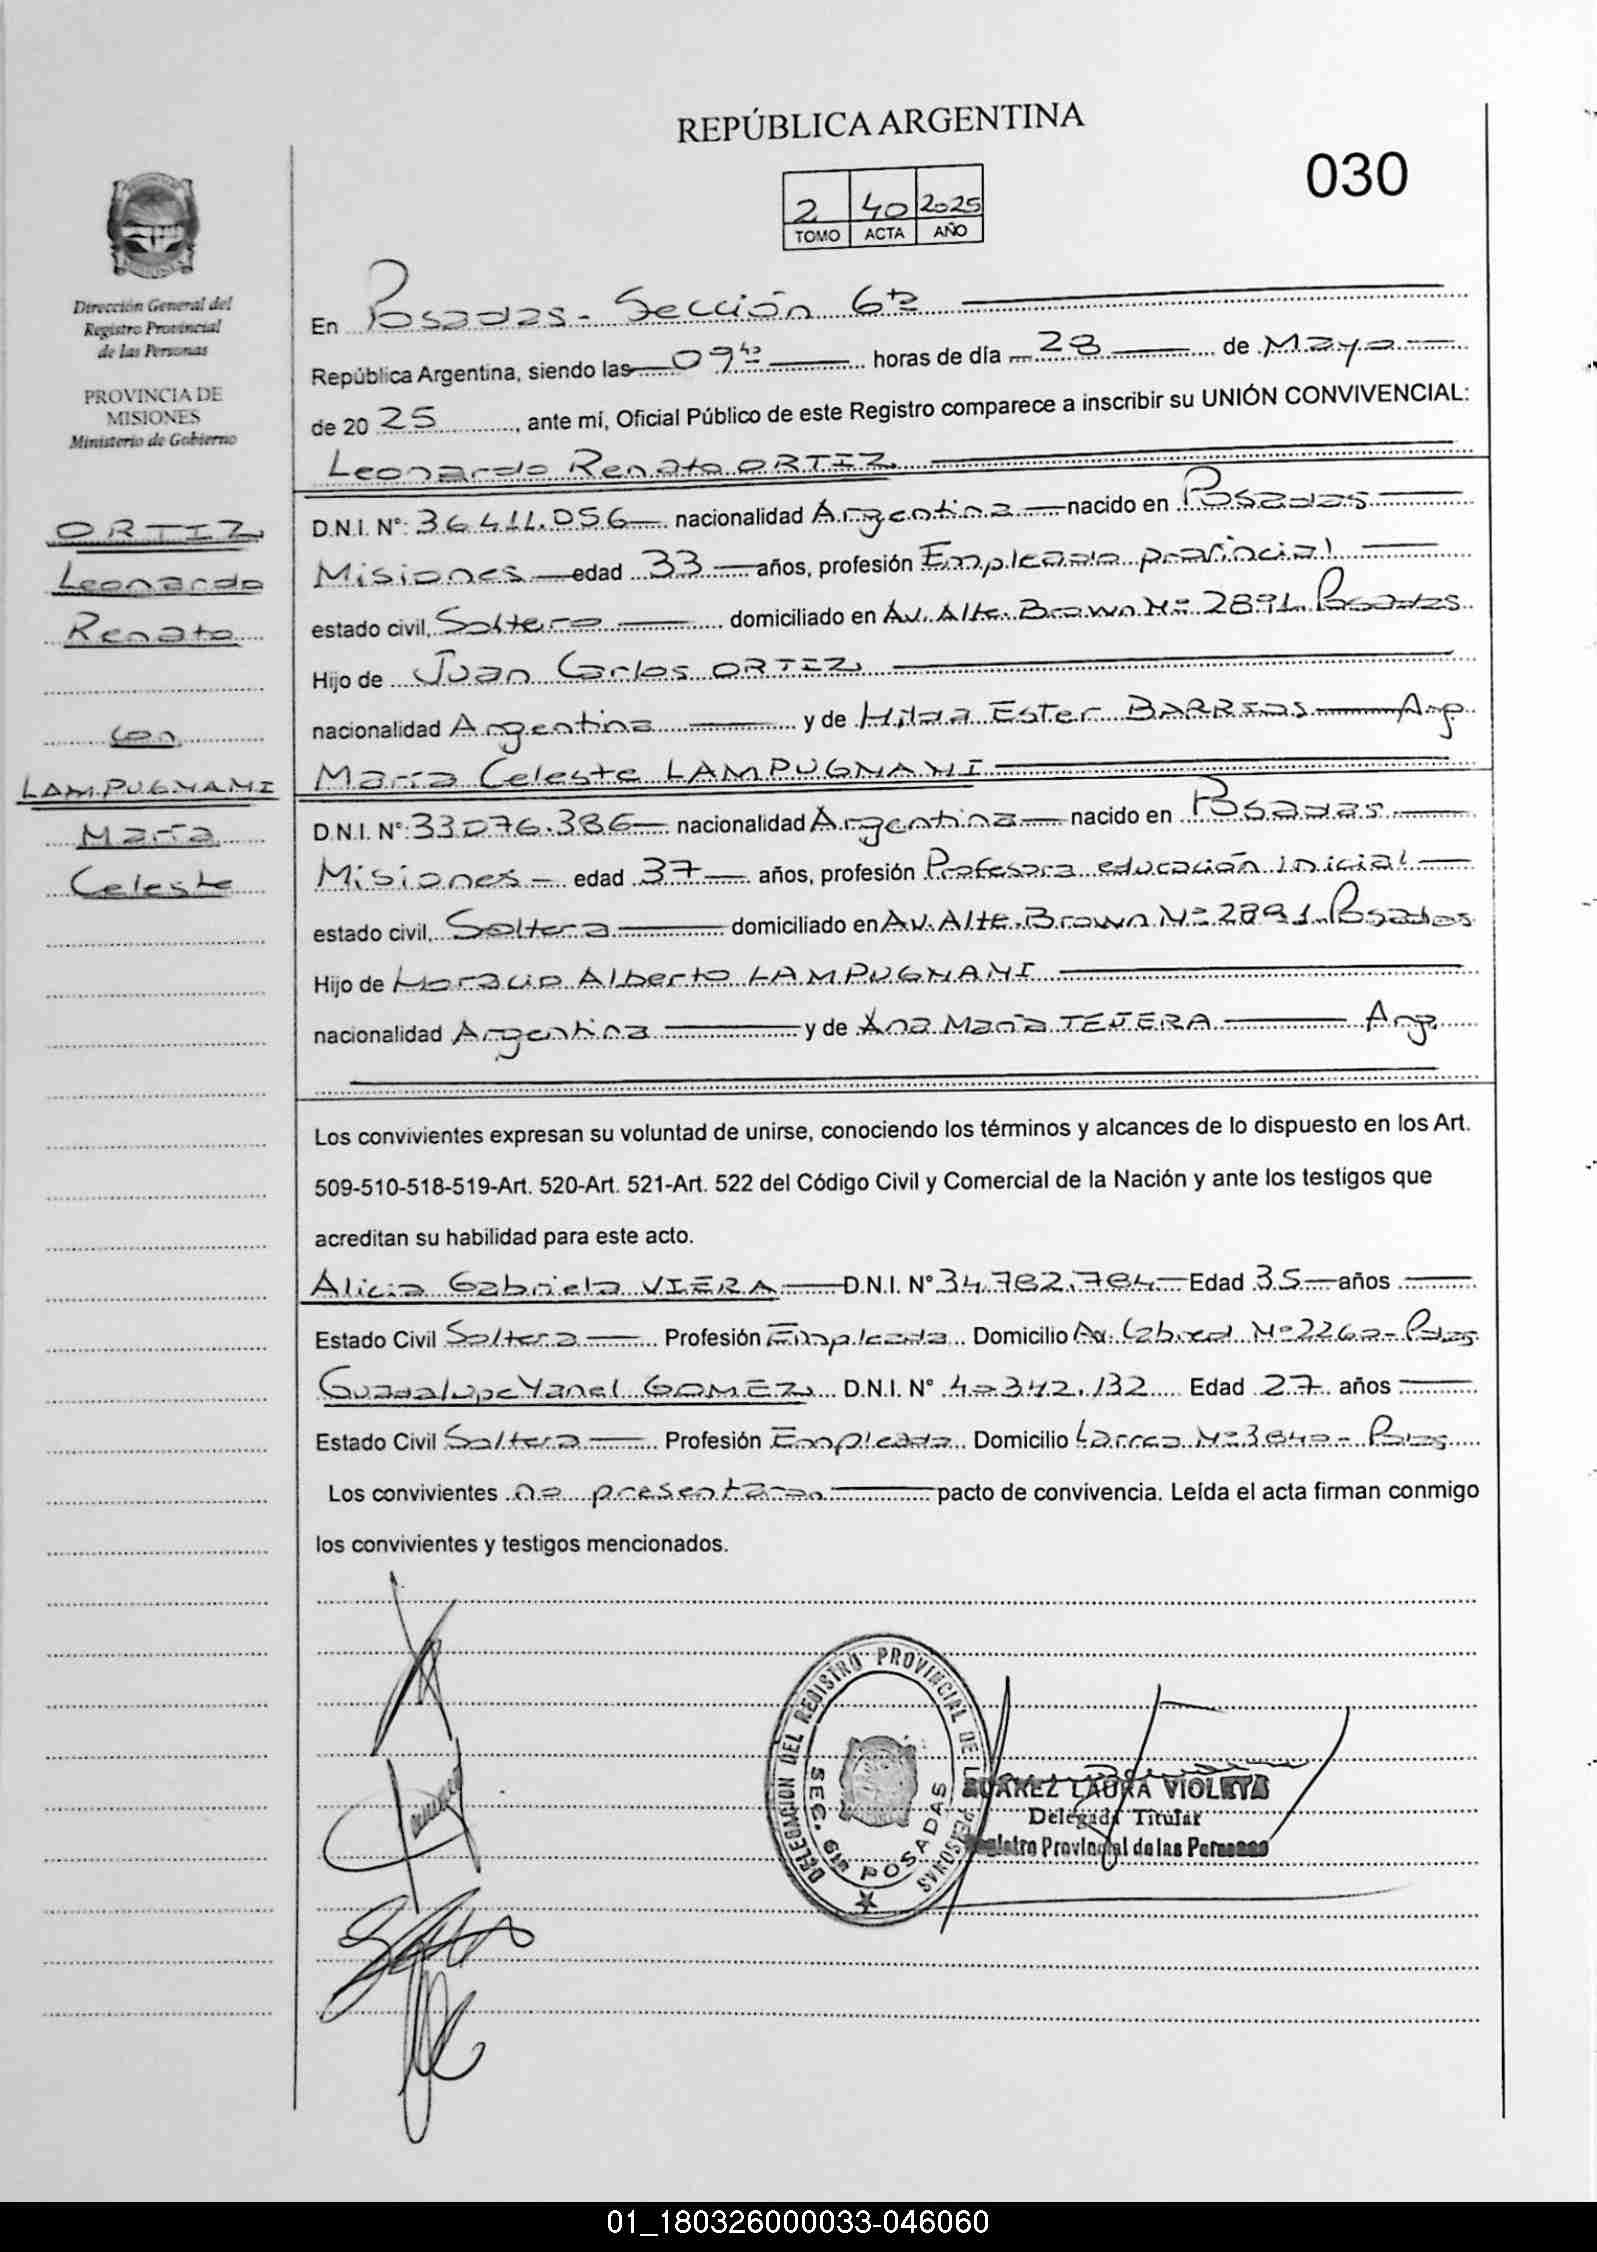 REPÚBLICA ARGENTINA
030
2 40 2025
TOMO ACTA AÑO
Dirección General del
Registro Provincial
de las Personas
PROVINCIA DE
MISIONES
Ministerio de Gobierno
ORTIZ
Leonardo
Renato
con
LAMPUGNANI
María
Celeste
En Posadas - Sección 6ta
República Argentina, siendo las 09 40 horas de día 28 de Mayo
de 20 25, ante mí, Oficial Público de este Registro comparece a inscribir su UNIÓN CONVIVENCIAL:
Leonardo Renato ORTIZ
D.N.I. N°: 36.411.056 nacionalidad Argentina nacido en Posadas
Misiones edad 33 años, profesión Empleado provincial
estado civil, Soltero domiciliado en Av. Alte. Brown N° 2891. Posadas
Hijo de Juan Carlos ORTIZ
nacionalidad Argentina y de Hilda Ester BARRIOS Arg
María Celeste LAMPUGNANI
D.N.I. N°: 33.076.386 nacionalidad Argentina nacido en Posadas
Misiones - edad 37 años, profesión Profesora educación inicial
estado civil, Soltera domiciliado en Av. Alte. Brown N° 2891. Posadas
Hijo de Horacio Alberto LAMPUGNANI
nacionalidad Argentina y de Ana María TEJERA Arg.
Los convivientes expresan su voluntad de unirse, conociendo los términos y alcances de lo dispuesto en los Art.
509-510-518-519-Art. 520-Art. 521-Art. 522 del Código Civil y Comercial de la Nación y ante los testigos que
acreditan su habilidad para este acto.
Alicia Gabriela VIERA D.N.I. N° 34.782.784 Edad 35 años
Estado Civil Soltera Profesión Empleada Domicilio Av. Cabred N° 2260 - Pdas
Guadalupe Yanel GOMEZ D.N.I. N° 40.342.132 Edad 27 años
Estado Civil Soltera Profesión Empleada Domicilio Larrea N° 3840 - Pdas
Los convivientes no presentaron pacto de convivencia. Leída el acta firman conmigo
los convivientes y testigos mencionados.
DELEGACION DEL REGISTRO PROVINCIAL DE LAS PERSONAS
SEC. 6ta POSADAS
SUAREZ LAURA VIOLETA
Delegada Titular
Registro Provincial de las Personas
01_180326000033-046060